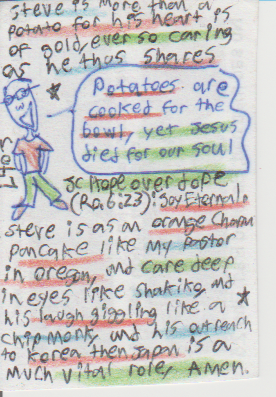 Steve is more than a
potato for his heart is
of gold, ever so caring
as he thus shares
Potatoes are
cooked for the
bowl, yet Jesus
died for our soul
JC Hope over dope
Steve is as an orange Charm
pancake like my Pastor
in oregon, and care deep
in eyes like shaking, and
his laugh giggling like a
chipmonk, and his outreach
to Korea then Japan is a
much vital role, Amen.